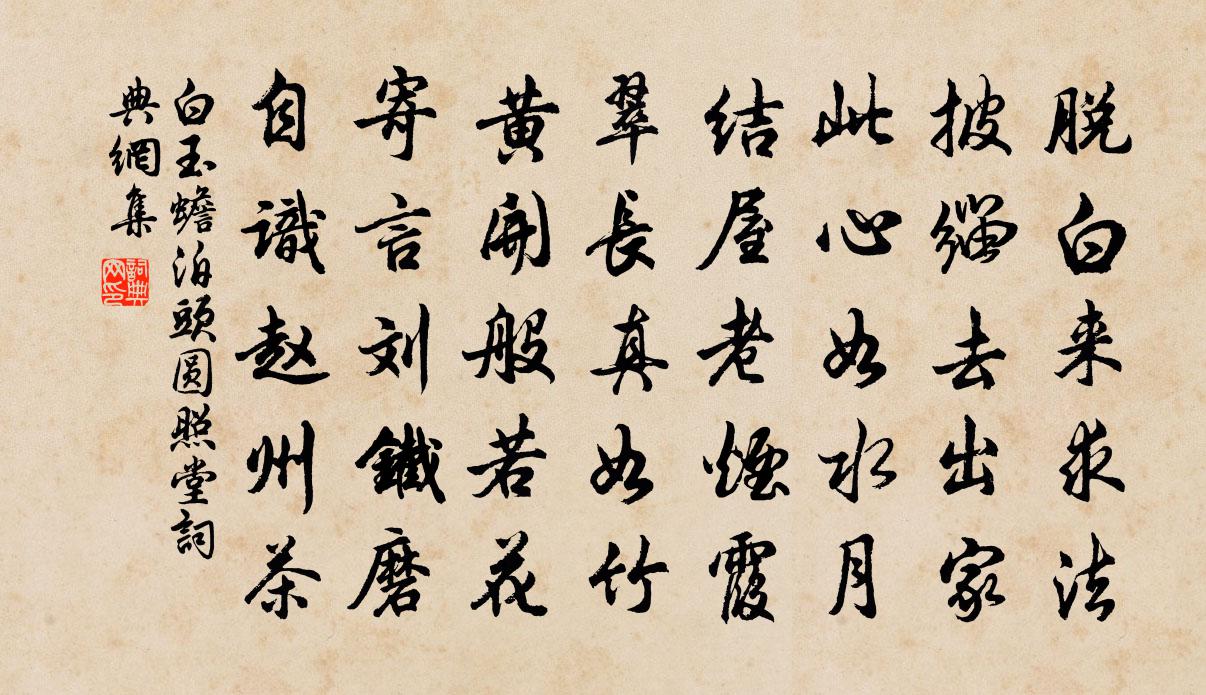 脱白来求法
披缁去出家
此心如水月
结屋老煙霞
翠長真如竹
黄開般若花
寄言刘鐵磨
自識赵州茶
白玉蟾泊頭圓照堂詞
典網集
詞典
网印